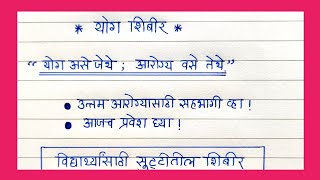 * योग शिबीर *
“ योग असे जेथे ; आरोग्य वसे तेथे ”
• उत्तम आरोग्यासाठी सहभागी व्हा !
• आजच प्रवेश घ्या !
विद्यार्थ्यांसाठी सुट्टीतील शिबीर